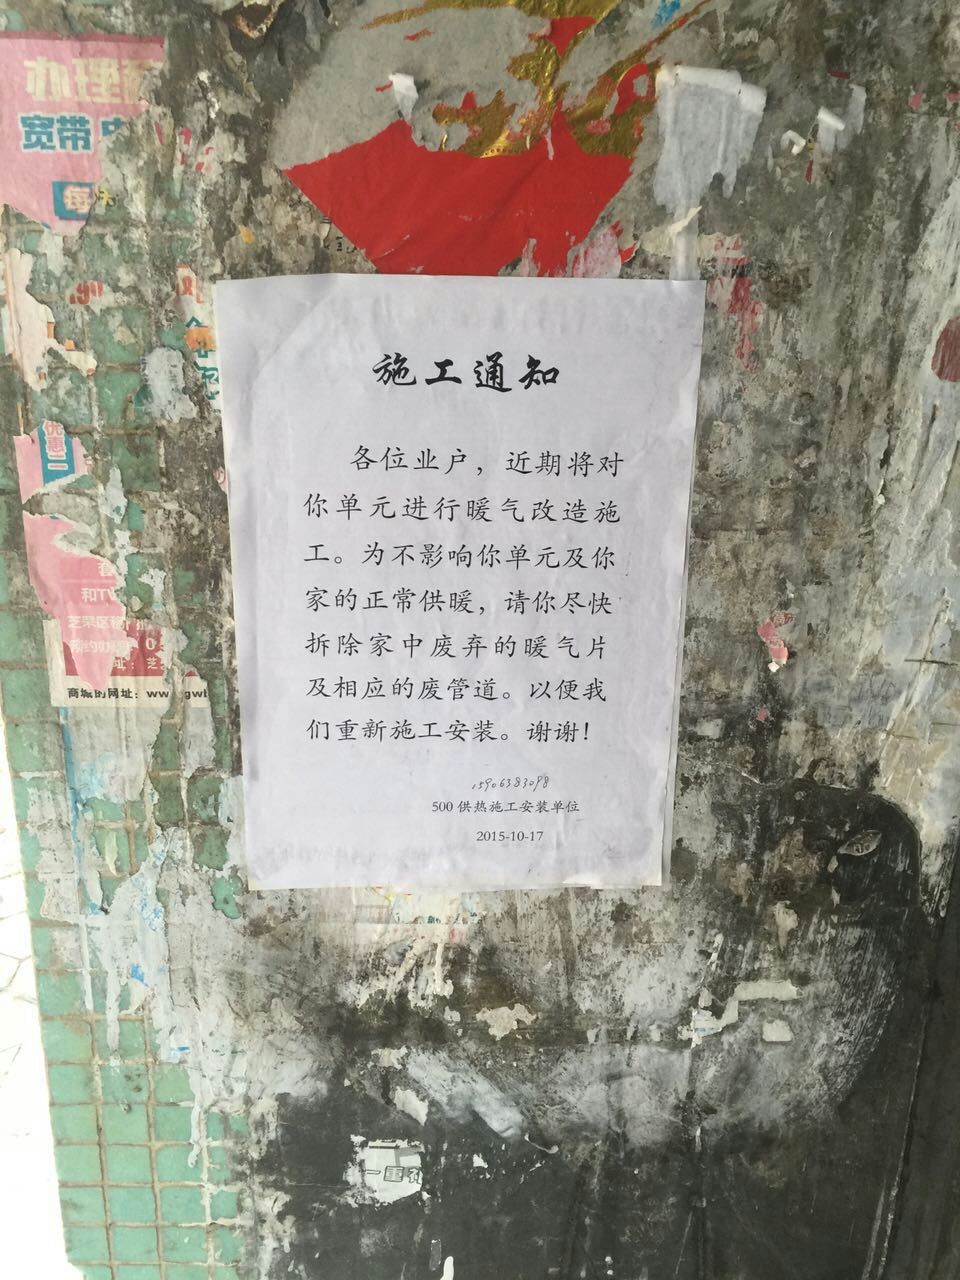 办理
宽带
每
优惠
和TV
商城的网址：www.gwb
施工通知
各位业户，近期将对
你单元进行暖气改造施
工。为不影响你单元及你
家的正常供暖，请你尽快
拆除家中废弃的暖气片
及相应的废管道。以便我
们重新施工安装。谢谢！
15906383098
500 供热施工安装单位
2015-10-17
一重礼